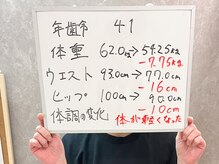 年齢 41
体重 62.0kg→54.25kg
-7.75kg
ウエスト 93.0cm→77.0cm
-16cm
ヒップ 100cm→90.0cm
-10cm
体調の変化 体が軽くなった